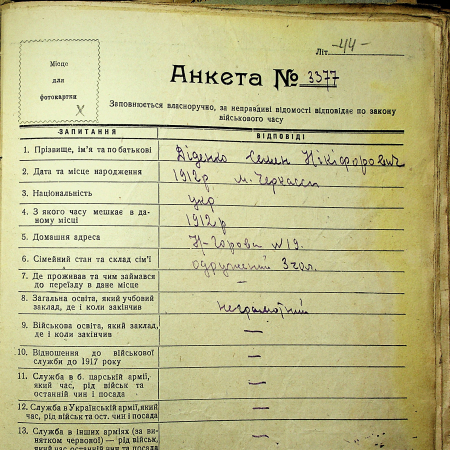 Літ. -44-
Місце
для
фотокартки
Анкета № 3377
Заповнюється власноручно, за неправдиві відомості відповідає по закону
військового часу
ЗАПИТАННЯ
ВІДПОВІДІ
1. Прізвище, ім'я та по батькові
Віденко Семен Нікіфорович
2. Дата та місце народження
1912р м. Черкасси
3. Національність
укр
4. З якого часу мешкає в да-
ному місці
1912 р
5. Домашня адреса
Н-Горова № 19.
6. Сімейний стан та склад сім'ї
одружений 3 чол.
7. Де проживав та чим займався
до переїзду в дане місце
—
8. Загальна освіта, який учбовий
заклад, де і коли закінчив
неграмотний
9. Військова освіта, який заклад,
де і коли закінчив
—
10. Відношення до військової
служби до 1917 року
—
11. Служба в б. царській армії,
який час, рід військ та
останній чин і посада
—
12. Служба в Українській армії, який
час, рід військ та ост. чин і посада
—
13. Служба в інших арміях (за ви-
нятком червоної) — рід військ,
який час останній чин та посада
—